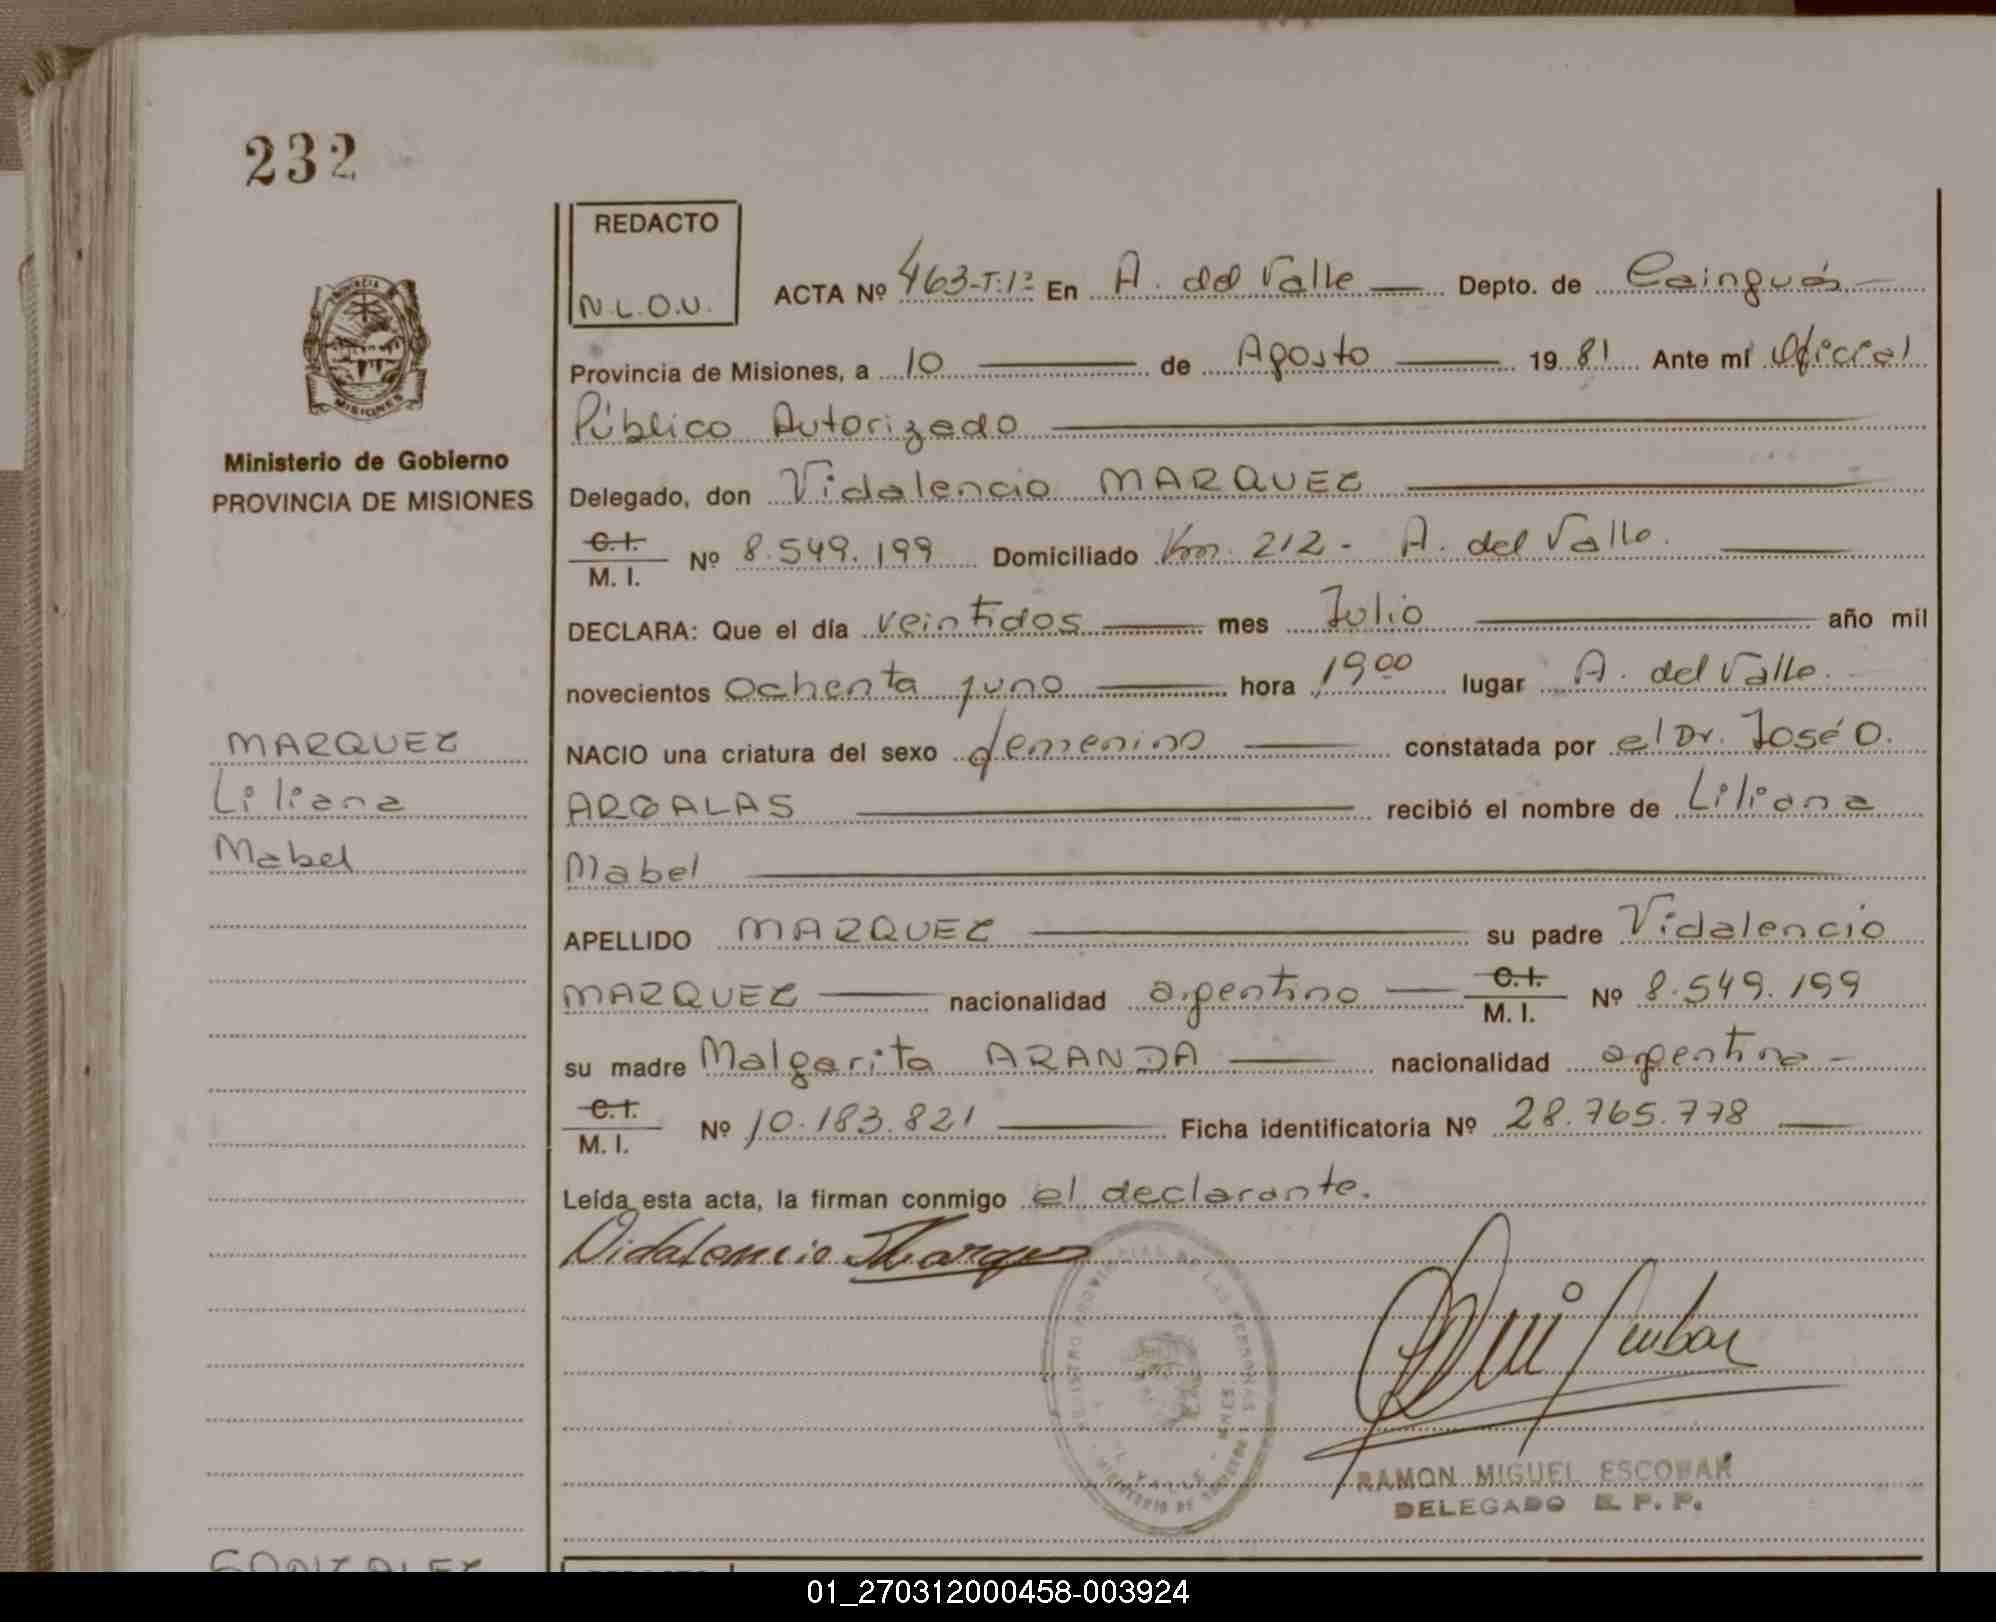 232
REDACTO
N.L.O.U.
ACTA Nº 463-T:1º En A. del Valle Depto. de Cainguás
Provincia de Misiones, a 10 de Agosto 1981 Ante mí Oficial
Público Autorizado
Ministerio de Gobierno
PROVINCIA DE MISIONES
Delegado, don Vidalencio MARQUEZ
C.I.
M. I. Nº 8.549.199 Domiciliado Km. 212 - A. del Valle.
DECLARA: Que el día veintidos mes Julio año mil
novecientos ochenta yuno hora 19 00 lugar A. del Valle.
MARQUEZ
Liliana
Mabel
NACIO una criatura del sexo femenino constatada por el Dr. José O.
ARGALAS recibió el nombre de Liliana
Mabel
APELLIDO MARQUEZ su padre Vidalencio
MARQUEZ nacionalidad argentino C.I. M. I. Nº 8.549.199
su madre Malgarita ARANDA nacionalidad argentina
C.I.
M. I. Nº 10.183.821 Ficha identificatoria Nº 28.765.778
Leída esta acta, la firman conmigo el declarante.
Vidalencio Marques
RAMON MIGUEL ESCOBAR
DELEGADO R. P. P.
GONZALEZ
01_270312000458-003924